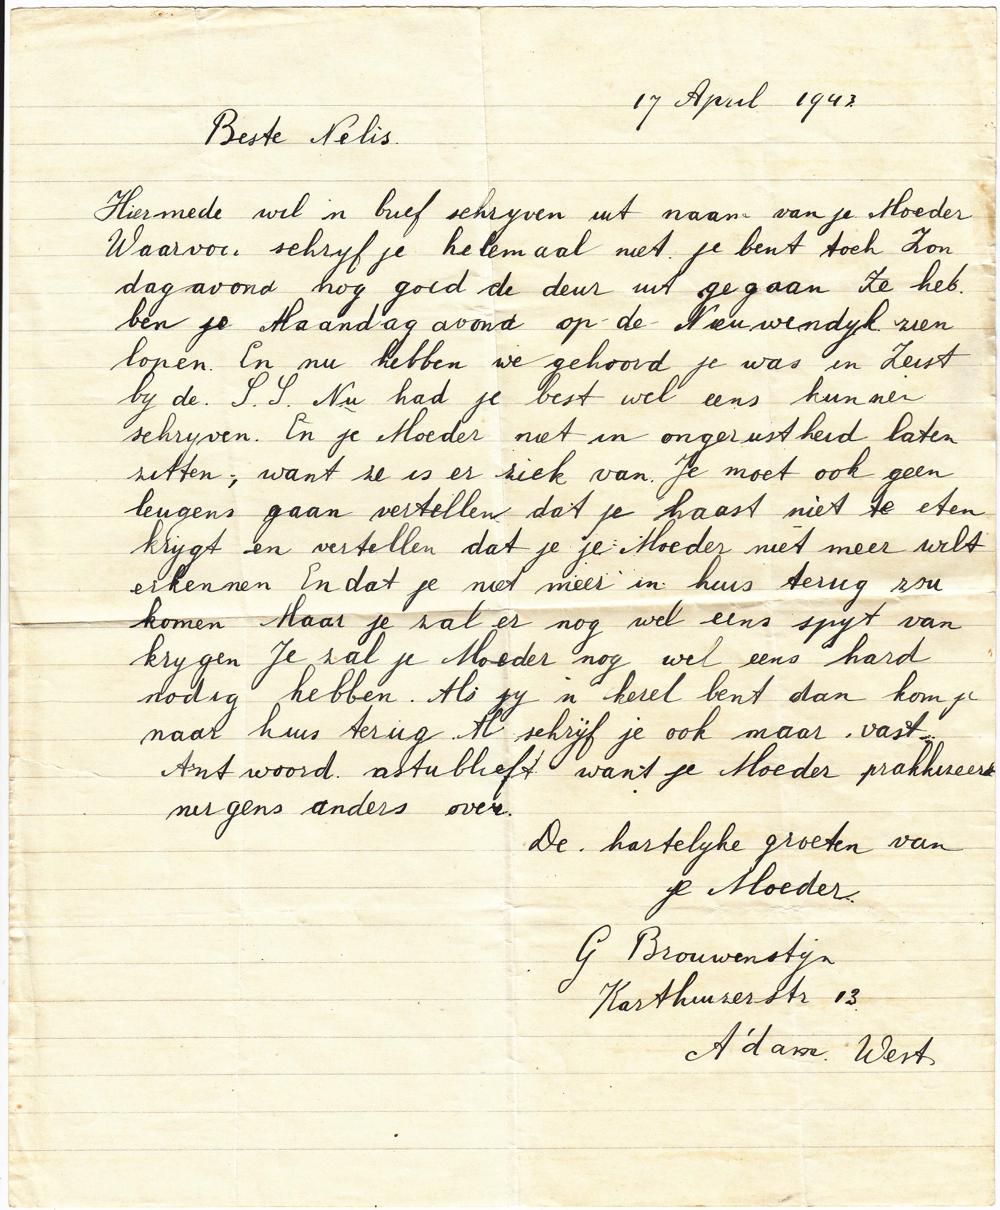 17 April 1943
Beste Nelis.
Hiermede wil 'n brief schryven uit naam van je Moeder
Waarvoor schryf je helemaal niet. je bent toch Zon
dagavond nog goed de deur uit gegaan Ze heb.
ben je Maandag avond op de Nieuwendyk. zien
lopen. En nu hebben we gehoord je was in Zeist
by de. S.S. Nu had je best wel eens kunnen
schryven. En je Moeder niet in ongerustheid laten
zitten, want ze is er ziek van. Je moet ook geen
leugens gaan vertellen dat je haast niet te eten
krygt en vertellen dat je je Moeder niet meer wilt
erkennen En dat je niet meer in huis terug zou
komen Maar je zal er nog wel eens spyt van
krygen Je zal je Moeder nog wel eens hard
nodig hebben. Als jy 'n kerel bent dan kom je
naar huis terug. Al schrijf je ook maar vast.
Antwoord. astublieft want je Moeder prakkizeert
nergens anders over.
De. hartelyke groeten van
je Moeder.
G Brouwenstijn
Karthuizerstr 13
A'dam. West